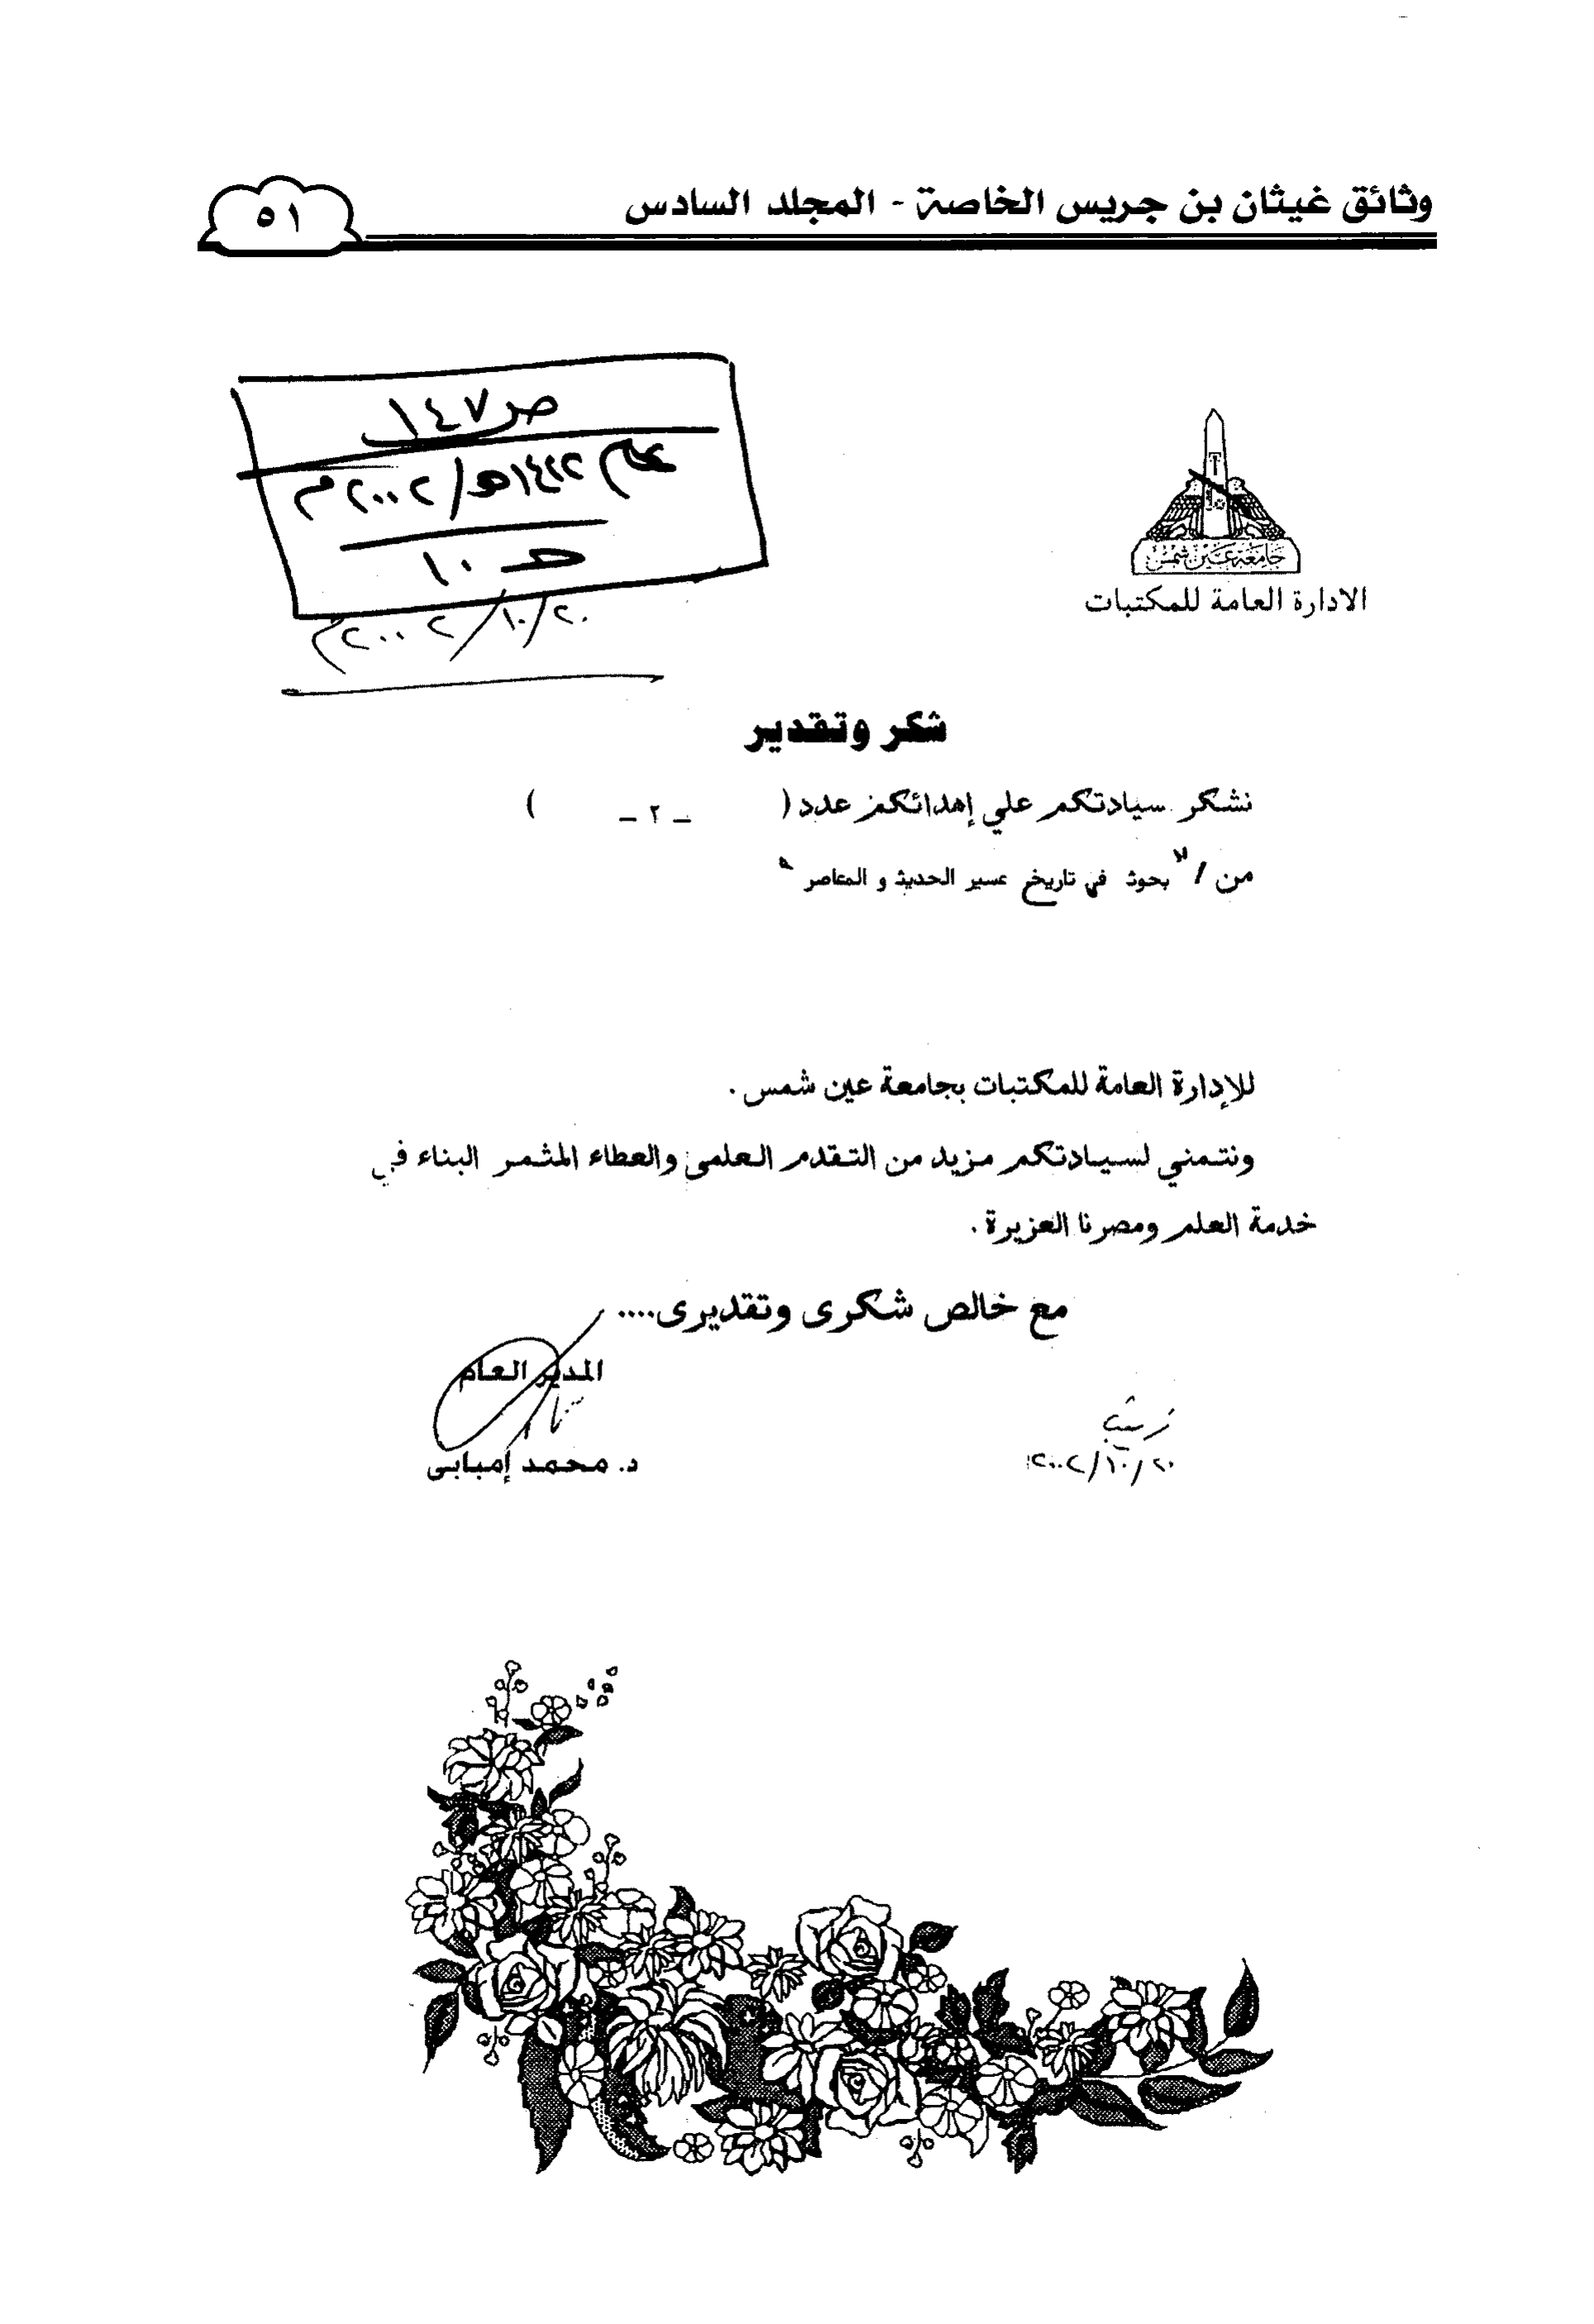 وثائق غيثان بن جريس الخاصة - المجلد السادس
٥١
ص ١٤٧
٢٠٠٢م
حـ ١٠
٢٠/١٠/٢٠٠٢م
جامعة عين شمس
الادارة العامة للمكتبات
شكر وتقدير
نشكر سيادتكم علي إهدائكم عدد ( _ ٢ _ )
من / " بحوث في تاريخ عسير الحديث و المعاصر "
للإدارة العامة للمكتبات بجامعة عين شمس .
ونتمني لسيادتكم مزيد من التقدم العلمى والعطاء المثمر البناء في
خدمة العلم ومصرنا العزيزة .
مع خالص شكرى وتقديرى....
المدير العام
د. محمد إمبابى
زينب
٢٠/١٠/٢٠٠٢